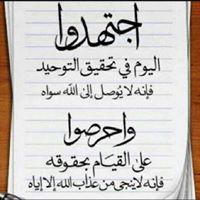 اجتهدوا
اليوم في تحقيق التوحيد
فإنه لا يُوصل إلى الله سواه
واحرصوا
على القيَام بحقوقه
فإنه لا ينجي من عذاب الله إلا إياه